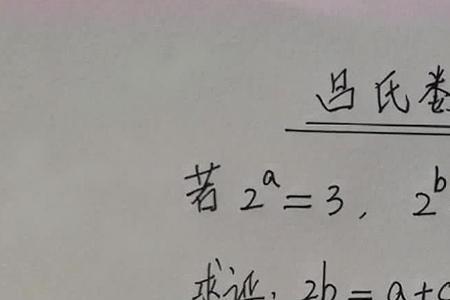 吕氏数
若 2^a = 3, 2^b
求证: 2b = a + c